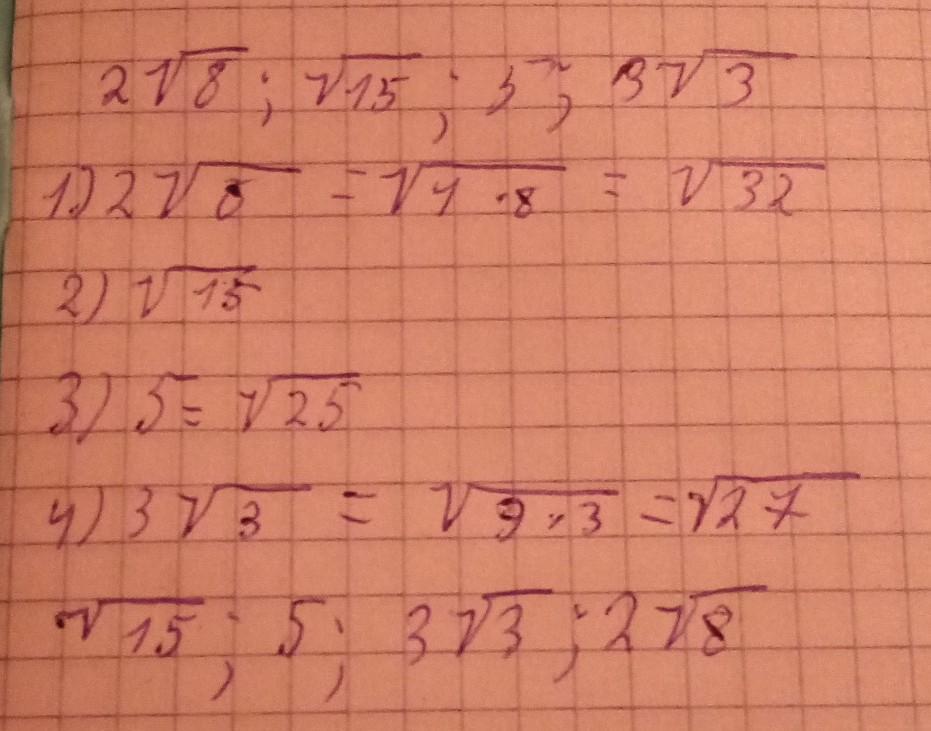 2√8; √15; 5; 3√3
1) 2√8 = √4·8 = √32
2) √15
3) 5 = √25
4) 3√3 = √9·3 = √27
√15; 5; 3√3; 2√8